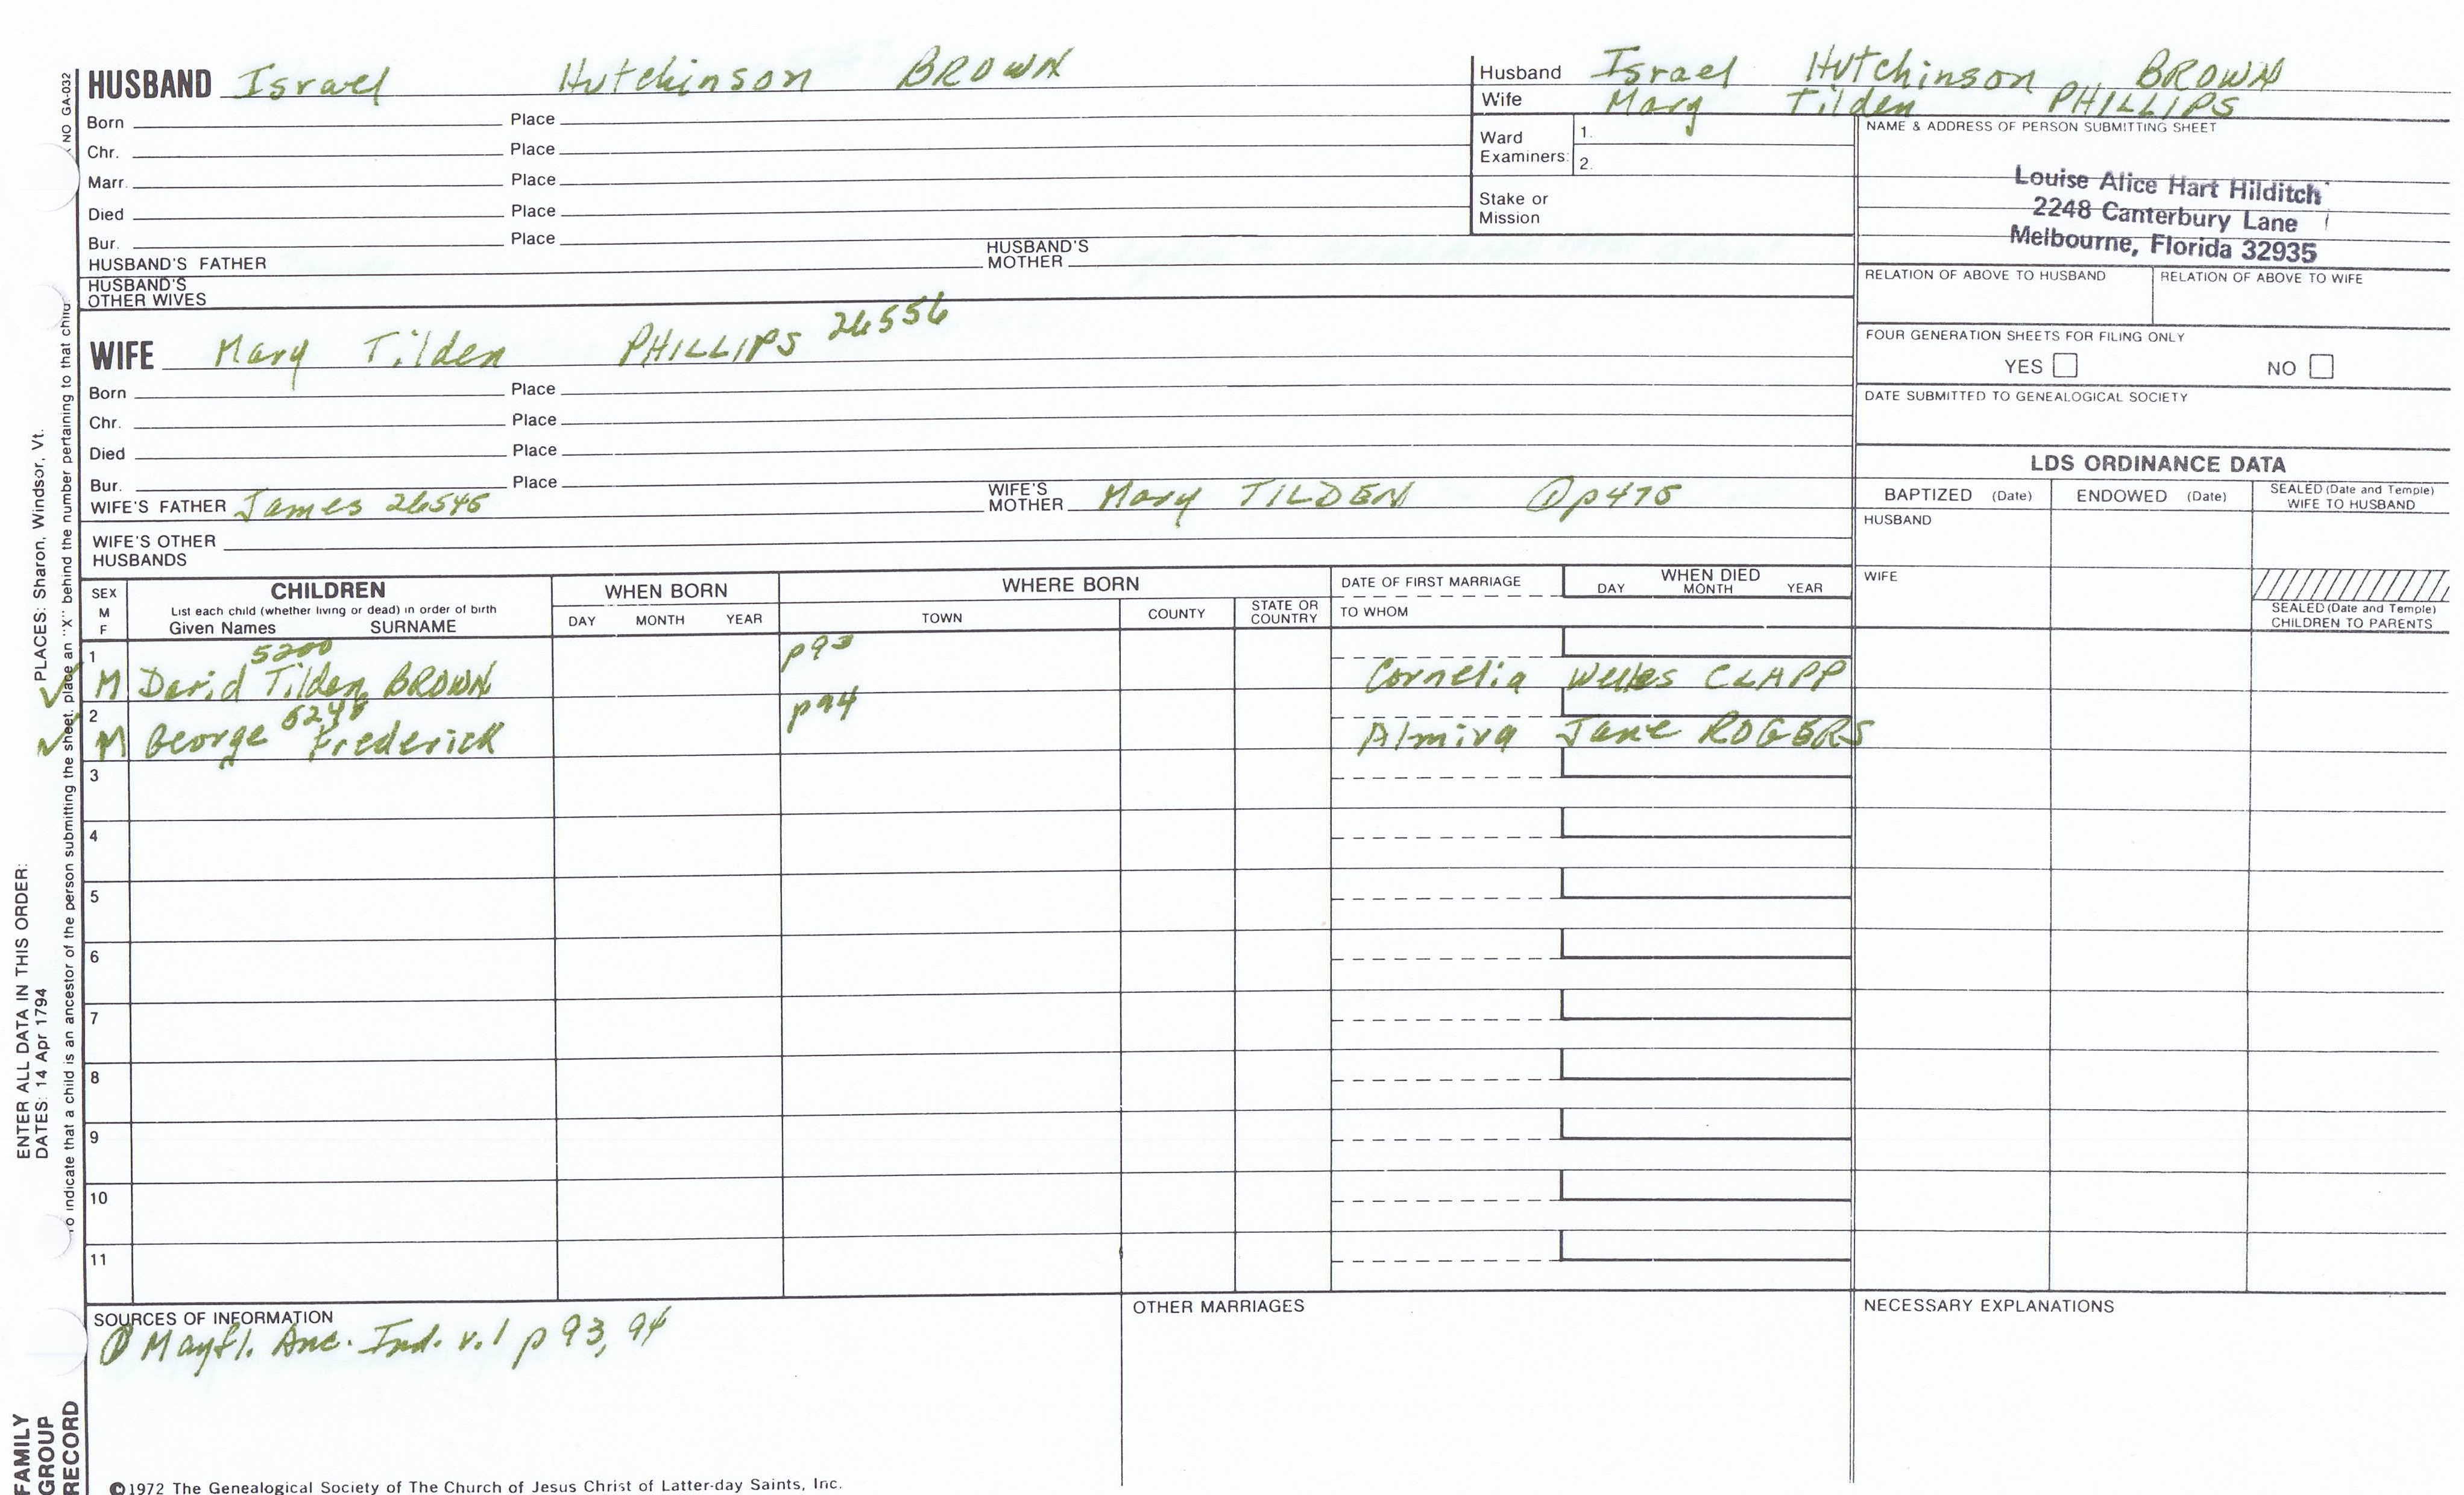 HUSBAND Israel Hutchinson BROWN
Born Place
Chr. Place
Marr. Place
Died Place
Bur. Place
HUSBAND'S FATHER HUSBAND'S MOTHER
HUSBAND'S OTHER WIVES
WIFE Mary Tilden PHILLIPS 26556
Born Place
Chr. Place
Died Place
Bur. Place
WIFE'S FATHER James 26545 WIFE'S MOTHER Mary TILDEN ① p475
WIFE'S OTHER HUSBANDS
Husband Israel Hutchinson BROWN
Wife Mary Tilden PHILLIPS
Ward Examiners: 1.
2.
Stake or Mission
NAME & ADDRESS OF PERSON SUBMITTING SHEET
Louise Alice Hart Hilditch
2248 Canterbury Lane
Melbourne, Florida 32935
RELATION OF ABOVE TO HUSBAND RELATION OF ABOVE TO WIFE
FOUR GENERATION SHEETS FOR FILING ONLY
YES NO
DATE SUBMITTED TO GENEALOGICAL SOCIETY
LDS ORDINANCE DATA
BAPTIZED (Date) ENDOWED (Date) SEALED (Date and Temple) WIFE TO HUSBAND
HUSBAND
WIFE
SEALED (Date and Temple) CHILDREN TO PARENTS
SEX M F
CHILDREN
List each child (whether living or dead) in order of birth
Given Names SURNAME
WHEN BORN
DAY MONTH YEAR
WHERE BORN
TOWN COUNTY STATE OR COUNTRY
DATE OF FIRST MARRIAGE
TO WHOM
WHEN DIED
DAY MONTH YEAR
1 5200 p93
M David Tilden BROWN Cornelia Welles CLAPP
2 p94
M George Frederick Almira Jane ROGERS
3
4
5
6
7
8
9
10
11
SOURCES OF INFORMATION
① Mayfl. Anc. Ind. v.1 p 93, 94
OTHER MARRIAGES
NECESSARY EXPLANATIONS
©1972 The Genealogical Society of The Church of Jesus Christ of Latter-day Saints, Inc.
NO GA-032
ENTER ALL DATA IN THIS ORDER:
DATES: 14 Apr 1794 PLACES: Sharon, Windsor, Vt.
indicate that a child is an ancestor of the person submitting the sheet, place an "X" behind the number pertaining to that
FAMILY
GROUP
RECORD